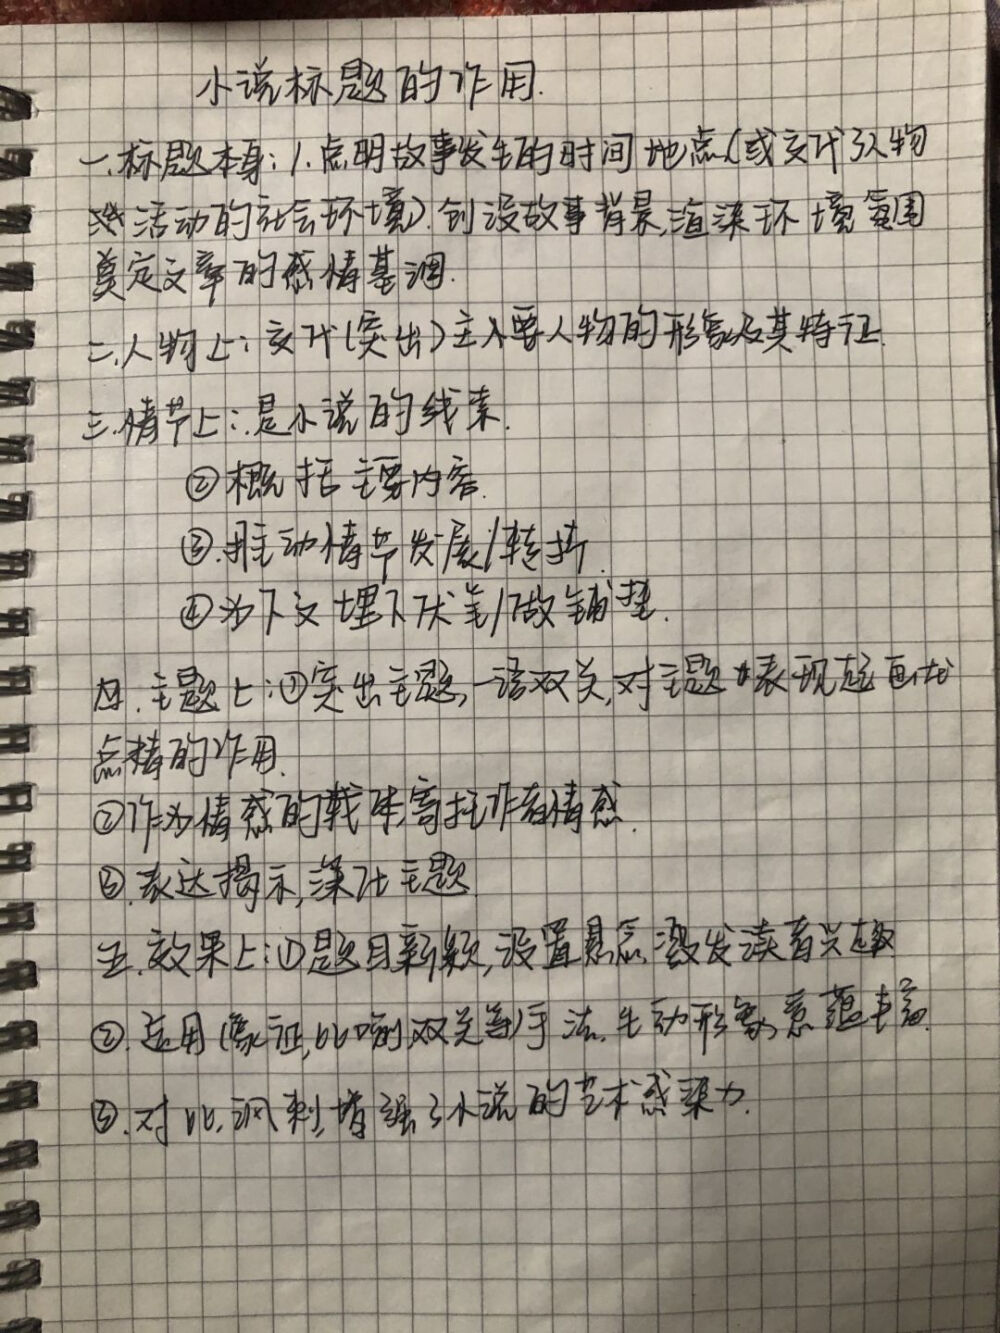 小说标题的作用.
一.标题本身:1.点明故事发生的时间地点(或交代人物
活动的社会环境).创设故事背景,渲染环境氛围
奠定文章的感情基调.
二.人物上:交代(突出)主要人物的形象及其特证.
三.情节上:.是小说的线索.
②概括主要内容.
③.推动情节发展/转折.
④为下文埋下伏笔/做铺垫.
四.主题上:①突出主题,一语双关,对主题表现起画龙
点睛的作用.
②作为情感的载体,寄托作者情感.
③.表达揭示,深化主题.
五.效果上:①题目新颖,设置悬念,激发读者兴趣.
②.运用(象征,比喻,双关等)手法.生动形象,意蕴丰富.
③.对比,讽刺,增强了小说的艺术感染力.